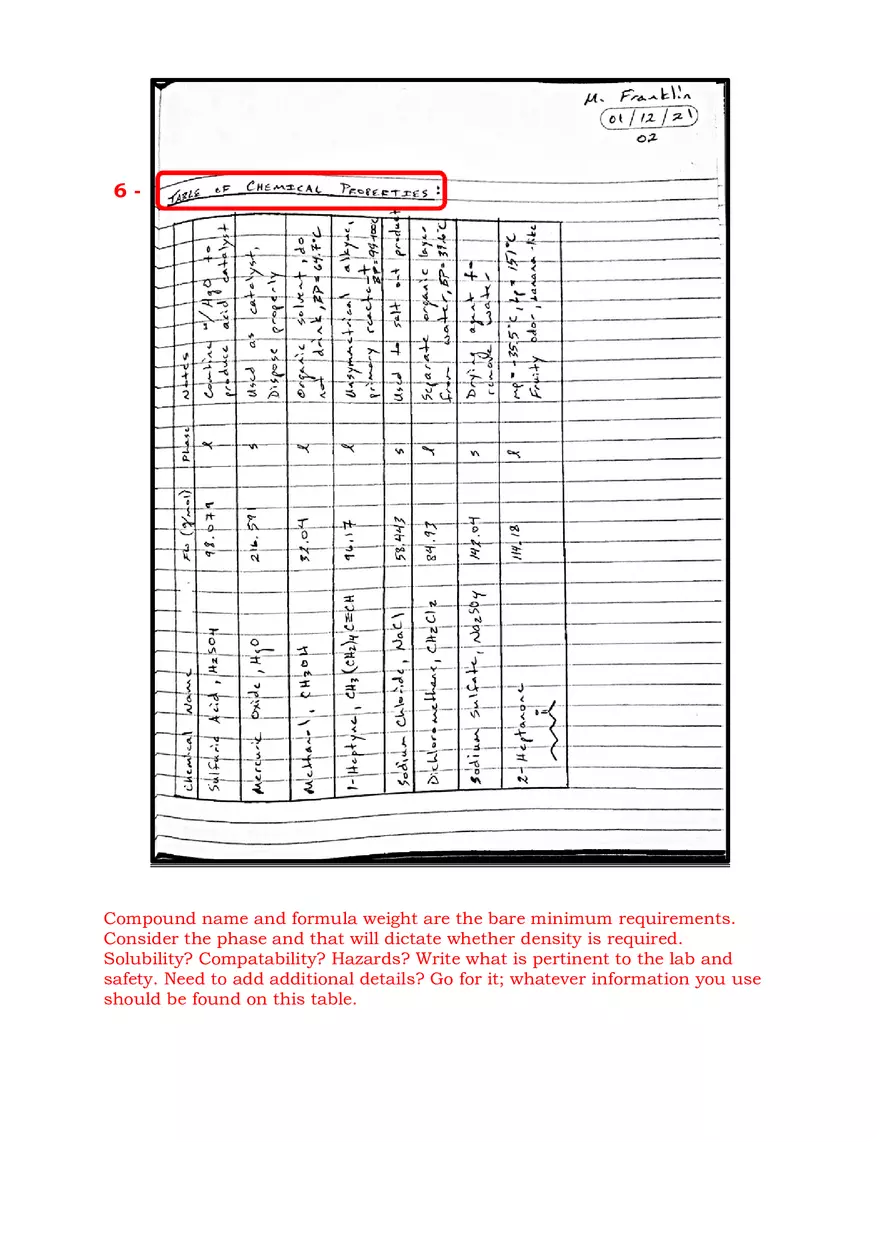 M. Franklin
01/12/21
02
6 -
TABLE OF CHEMICAL PROPERTIES:
Chemical Name FW (g/mol) Phase Notes
Sulfuric Acid, H2SO4 98.079 l Combine w/HgO to
produce acid catalyst
Mercuric Oxide, HgO 216.591 s Used as catalyst,
Dispose properly
Methanol, CH3OH 32.04 l Organic solvent, do
not drink, BP=64.7°C
1-Heptyne, CH3(CH2)4C≡CH 96.17 l Unsymmetrical alkyne,
primary reactant BP=99-100°C
Sodium Chloride, NaCl 58.443 s Used to salt out product
Dichloromethane, CH2Cl2 84.93 l Separate organic layer
from water, BP=39.6°C
Sodium Sulfate, Na2SO4 142.04 s Drying agent to
remove water
2-Heptanone 114.18 l mp=-35.5°C, bp=151°C
Fruity odor, banana-like
Compound name and formula weight are the bare minimum requirements.
Consider the phase and that will dictate whether density is required.
Solubility? Compatability? Hazards? Write what is pertinent to the lab and
safety. Need to add additional details? Go for it; whatever information you use
should be found on this table.